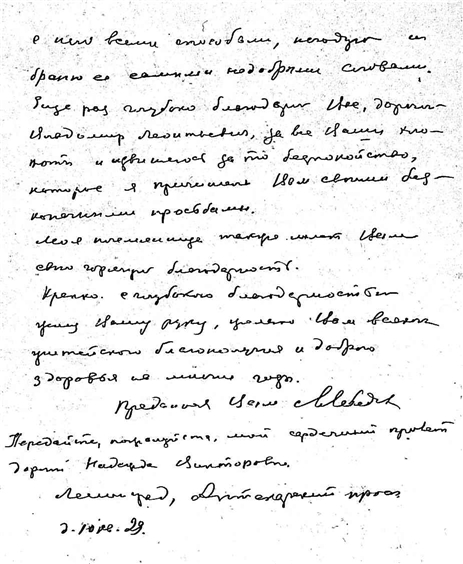 с ней всеми способами, негодую и
браню ее самыми недобрыми словами.
Еще раз глубоко благодарю Вас, дорогой
Владимир Леонтьевич, за все Ваши хло-
поты и извиняюсь за то беспокойство,
которое я причиняю Вам своими бес-
конечными просьбами.
Моя племянница также шлет Вам
свою горячую благодарность.
Крепко с глубокою благодарностью
жму Вашу руку, желаю Вам всякого
житейского благополучия и доброго
здоровья на многие годы.
Преданная Вам
Передайте, пожалуйста, мой сердечный привет
дорогой Надежде Викторовне.
Ленинград, просп
д. кв. 29.